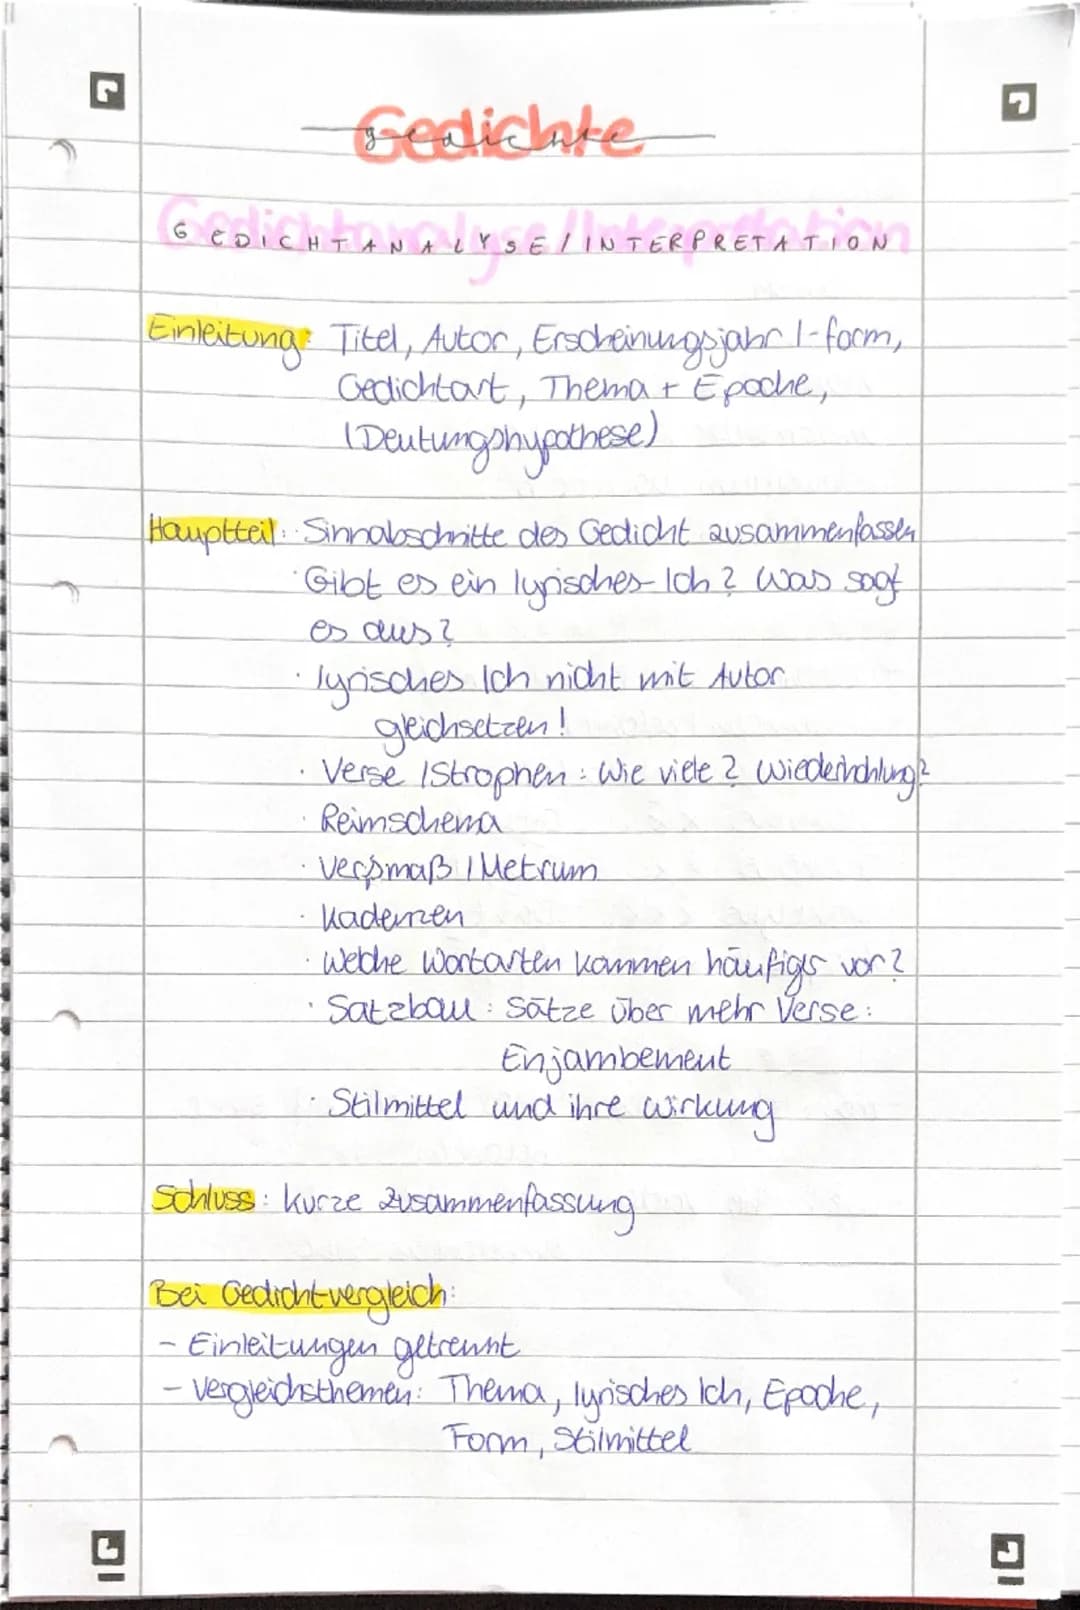 Gedichte
GEDICHTANALYSE/INTERPRETATION
Einleitung: Titel, Autor, Erscheinungsjahr /-form,
Gedichtart, Thema + Epoche,
(Deutungshypothese)
Hauptteil: · Sinnabschnitte des Gedicht zusammenfassen
· Gibt es ein lyrisches Ich? Was sagt
es aus?
· lyrisches Ich nicht mit Autor
gleichsetzen!
· Verse /Strophen: Wie viele? Wiederhohlung?
· Reimschema
· Versmaß / Metrum
· Kadenzen
· Welche Wortarten kommen häufiger vor?
· Satzbau: Sätze über mehr Verse:
Enjambement
· Stilmittel und ihre Wirkung
Schluss: kurze Zusammenfassung
Bei Gedichtvergleich:
- Einleitungen getrennt
- Vergleichsthemen: Thema, lyrisches Ich, Epoche,
Form, Stilmittel